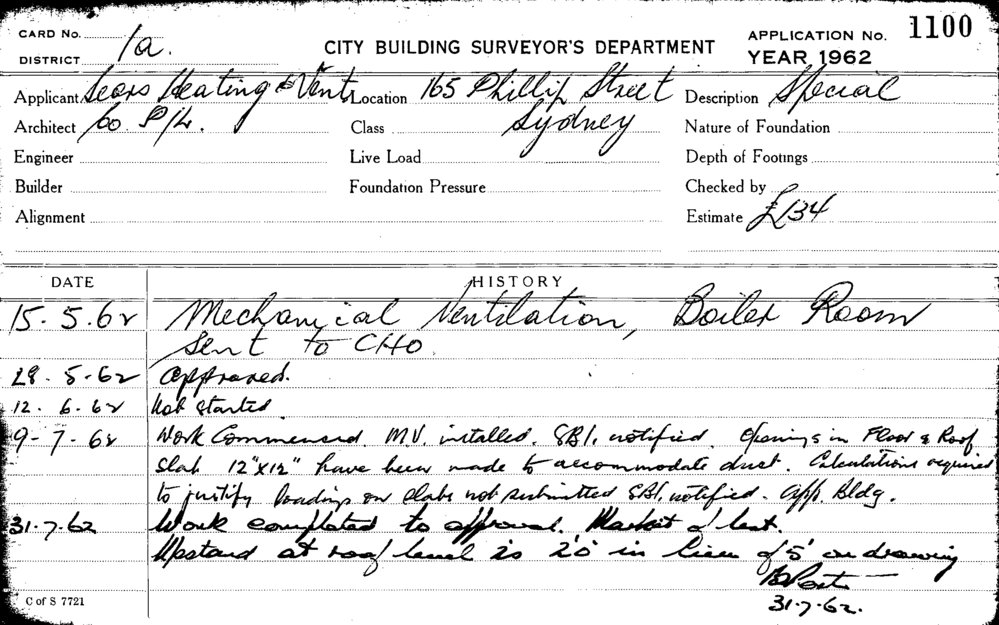 CARD No.
DISTRICT 1a.
CITY BUILDING SURVEYOR'S DEPARTMENT
APPLICATION No. 1100
YEAR 1962
Applicant Sears Heating & Vent Location 165 Phillip Street Description Special
Architect Co. P/L. Class Sydney Nature of Foundation
Engineer Live Load Depth of Footings
Builder Foundation Pressure Checked by
Alignment Estimate £134
DATE HISTORY
15.5.62 Mechanical Ventilation, Boiler Room
Sent to CHO.
28.5.62 Approved.
12.6.62 Not started.
9-7-62 Work Commenced. M.V. installed. SBI, notified. Openings in Floor & Roof
slab 12"x12" have been made to accommodate duct. Calculations required
to justify loadings on slabs not submitted SBI, notified. App. Bldg.
31.7.62 Work completed to approval.
Upstand at roof level is 2'0" in lieu of 5' on drawing
31.7.62.
C of S 7721